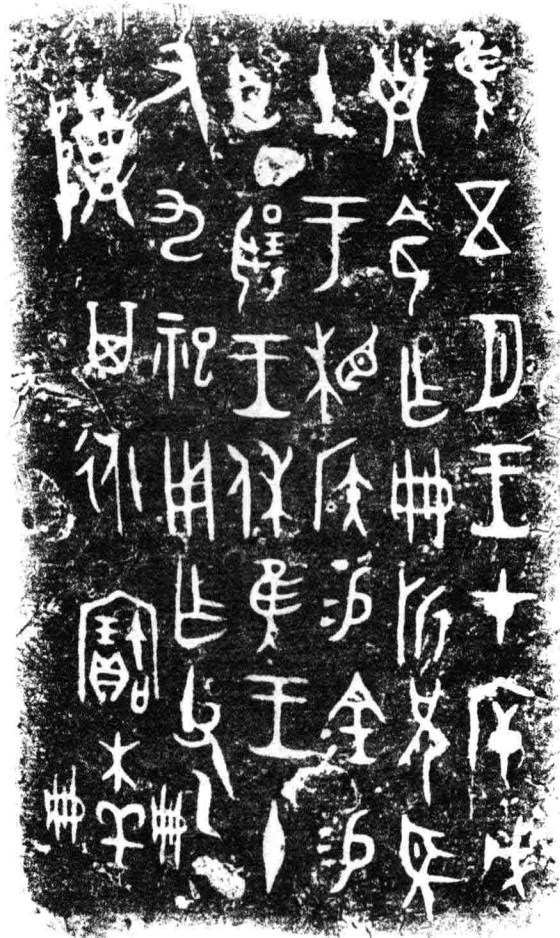 隹五月王才斥戊
子令乍册折兄望
土于相侯易金易
臣揚王休隹王十
又九祀用乍父乙
尊其永寶木羊册